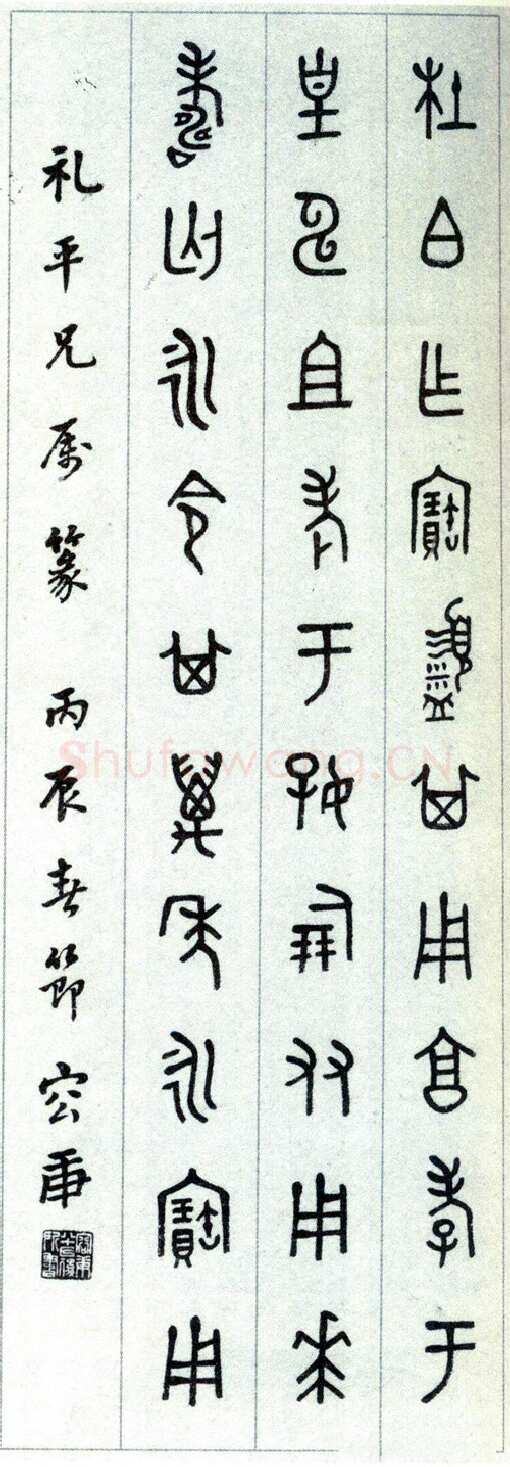 杜白乍寶盨其用亯孝于
皇申且考于好倗友用𠦪
壽匄永令其萬年永寶用
礼平兄属篆 丙辰春節 容庚
Shufawang.CN